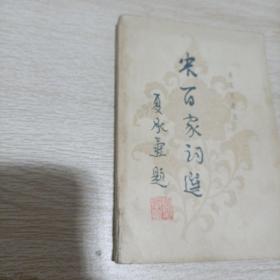 宋百家词选
夏承焘题